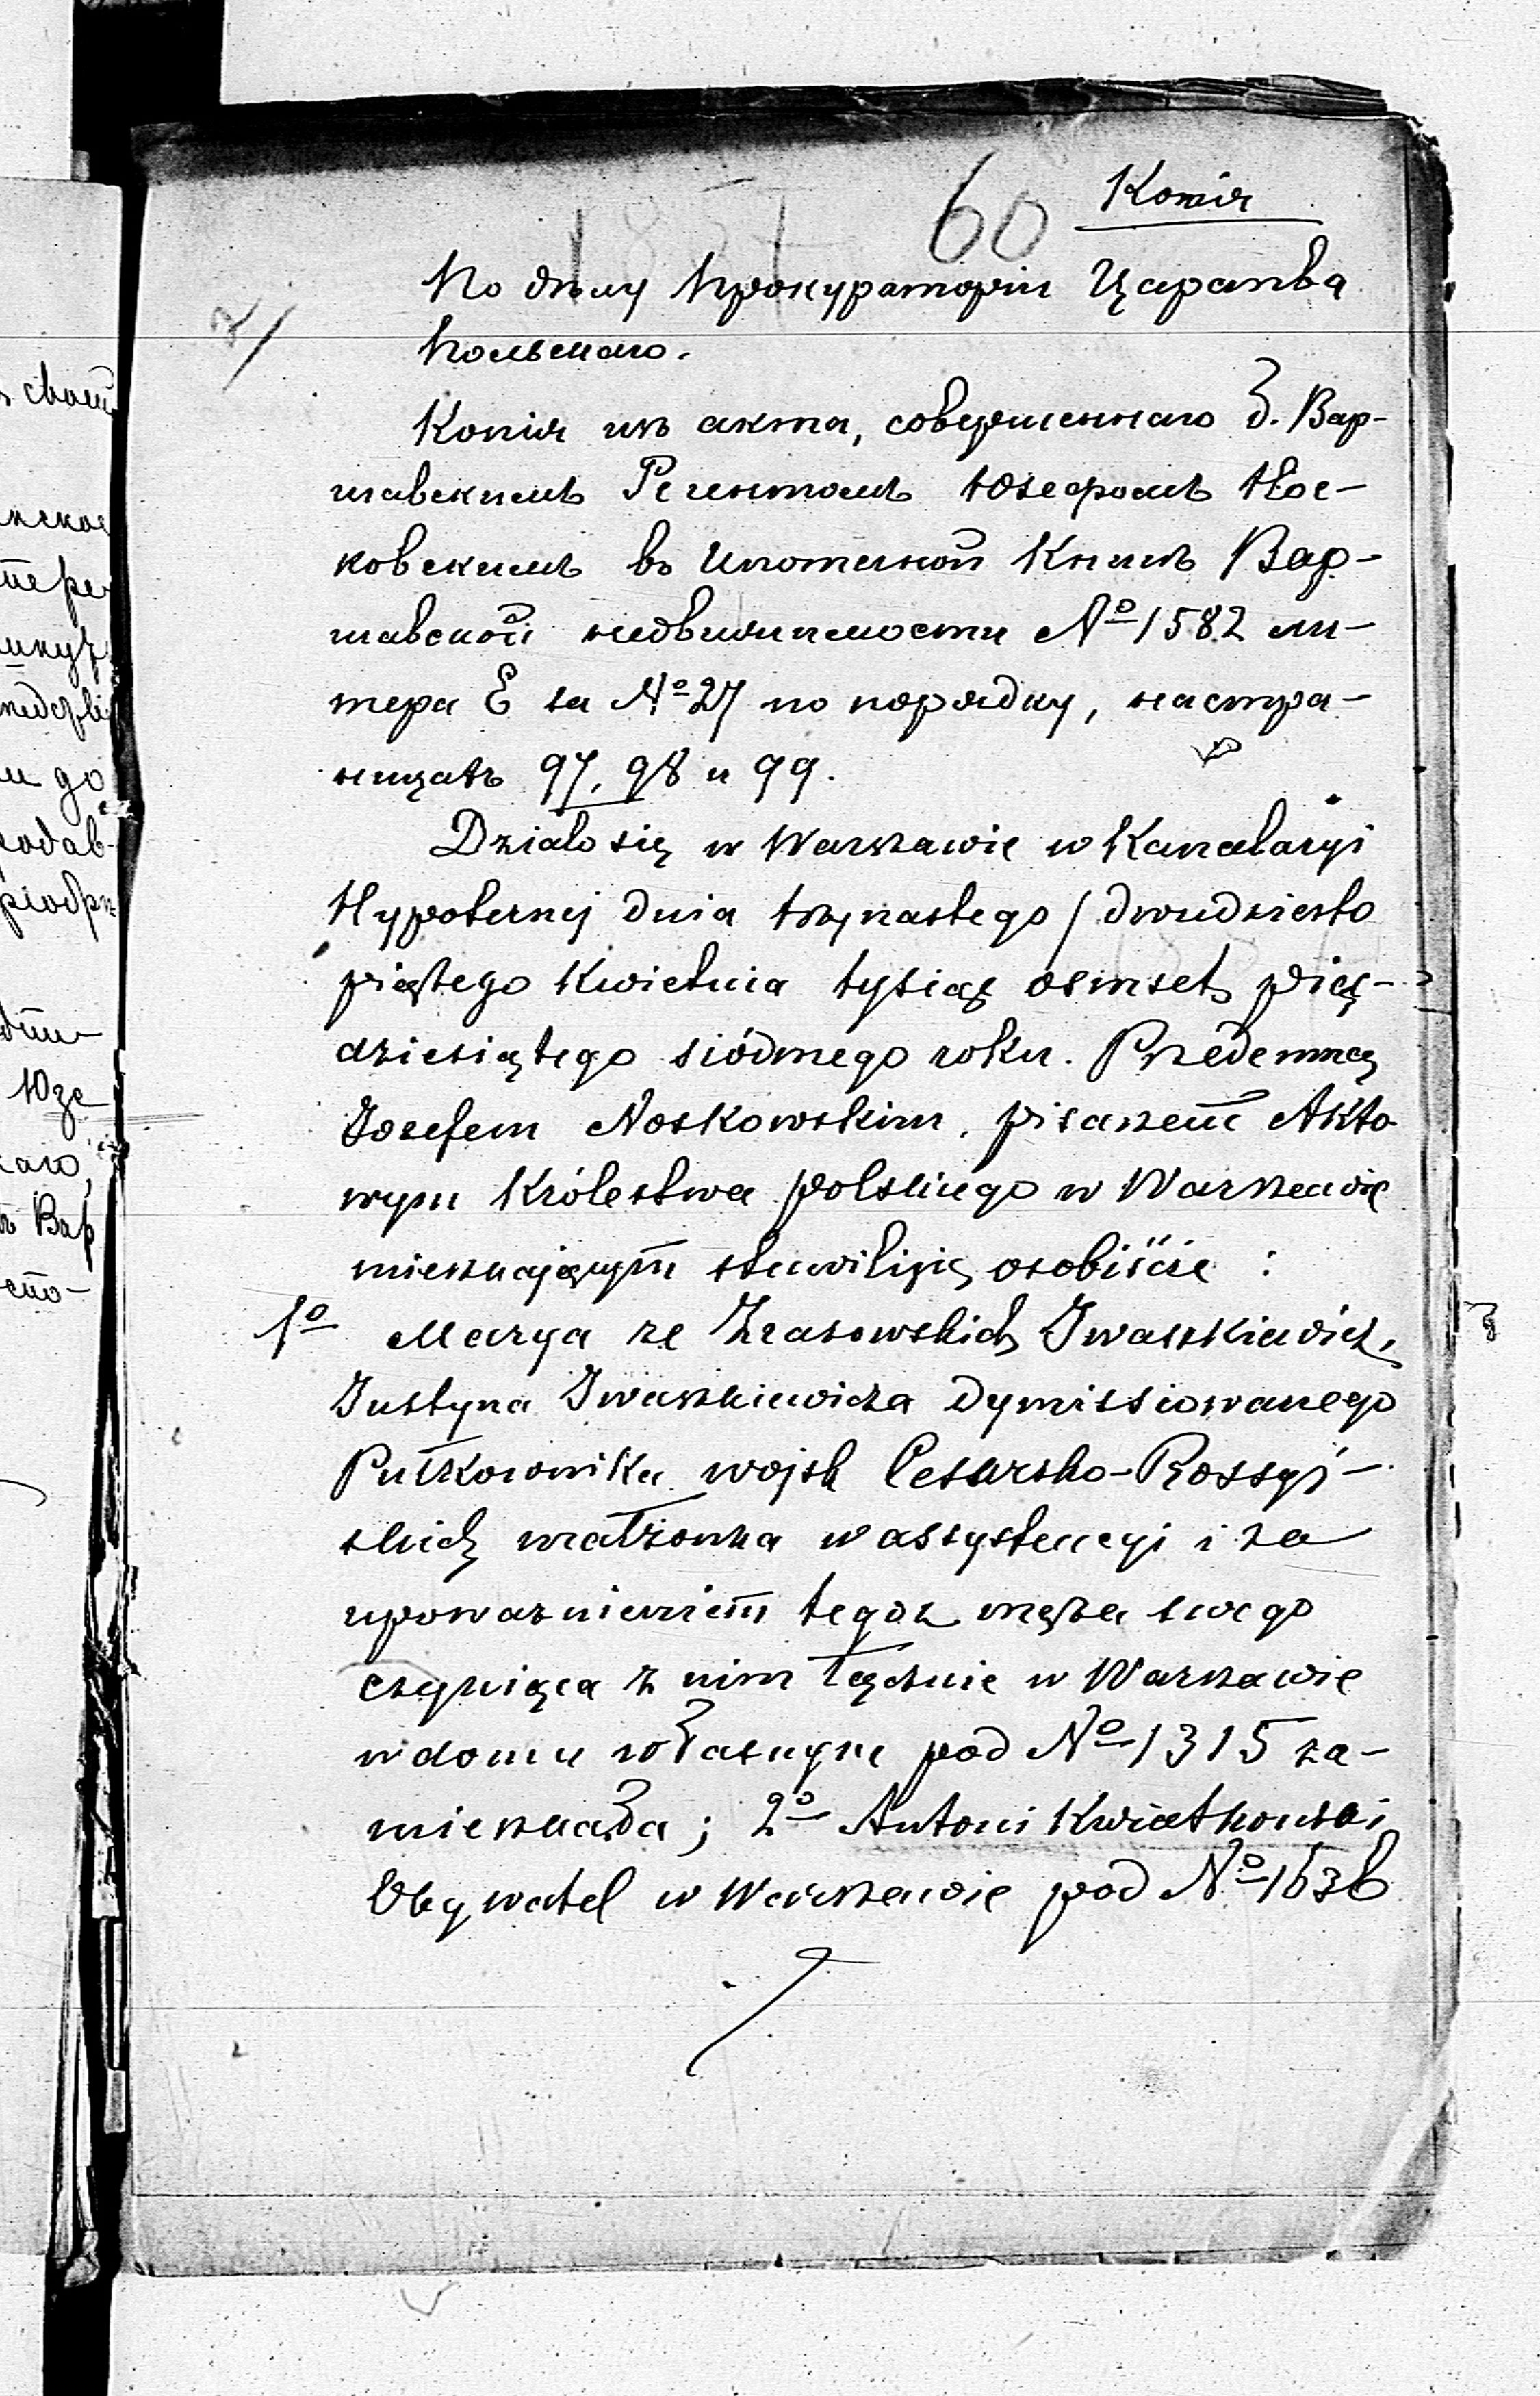 60 Копія
1857
По дѣлу Прокураторіи Царства
Польскаго.
Копія изъ акта, совершеннаго б. Вар-
шавскимъ Регентомъ Юзефомъ Нос-
ковскимъ въ Ипотечной Книгѣ Вар-
шавской недвижимости № 1582 ли-
тера Е за № 27 по порядку, на стра-
ницахъ 97, 98 и 99.
Działo się w Warszawie w Kancelaryi
Hypotecznej dnia trzynastego / dwudziesto
piątego Kwietnia tysiąc osmset pięć-
dziesiątego siódmego roku. Przedemną
Józefem Noskowskim, pisarzem Akto
wym Królestwa polskiego w Warszawie
mieszkającym stawili się osobiście :
1o Marya ze Iwaszkiewicz,
Justyna Iwaszkiewicza dymissiowanego
Pułkownika wojsk Cesarsko-Rossyj-
skich małżonka w assystencyi i za
upoważnieniem tegoż męża swego
czyniąca z nim łącznie w Warszawie
w domu własnym pod No 1315 za-
mieszkała; 2o Antoni Kwiatkowski
Obywatel w Warszawie pod No 1636